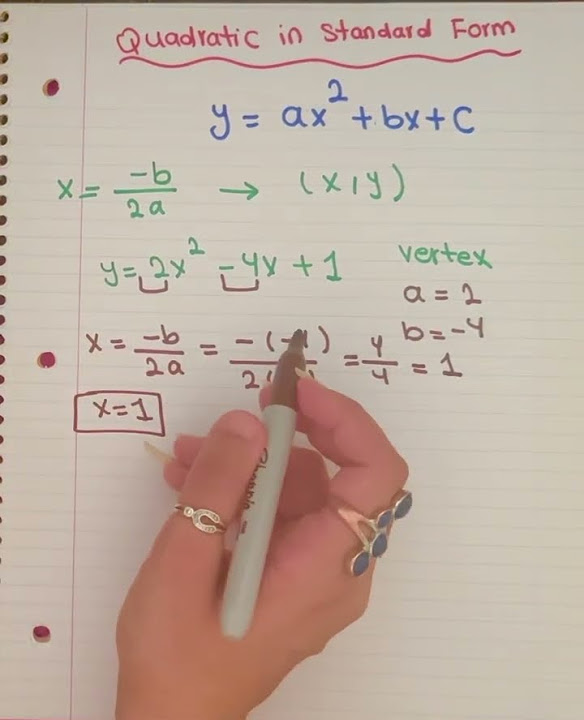 Quadratic in Standard Form
y = ax² + bx + c
x = -b/2a → (x,y)
y = 2x² - 4x + 1
vertex
a = 2
b = -4
x = -b/2a = = 4/4 = 1
x = 1
Sharpie